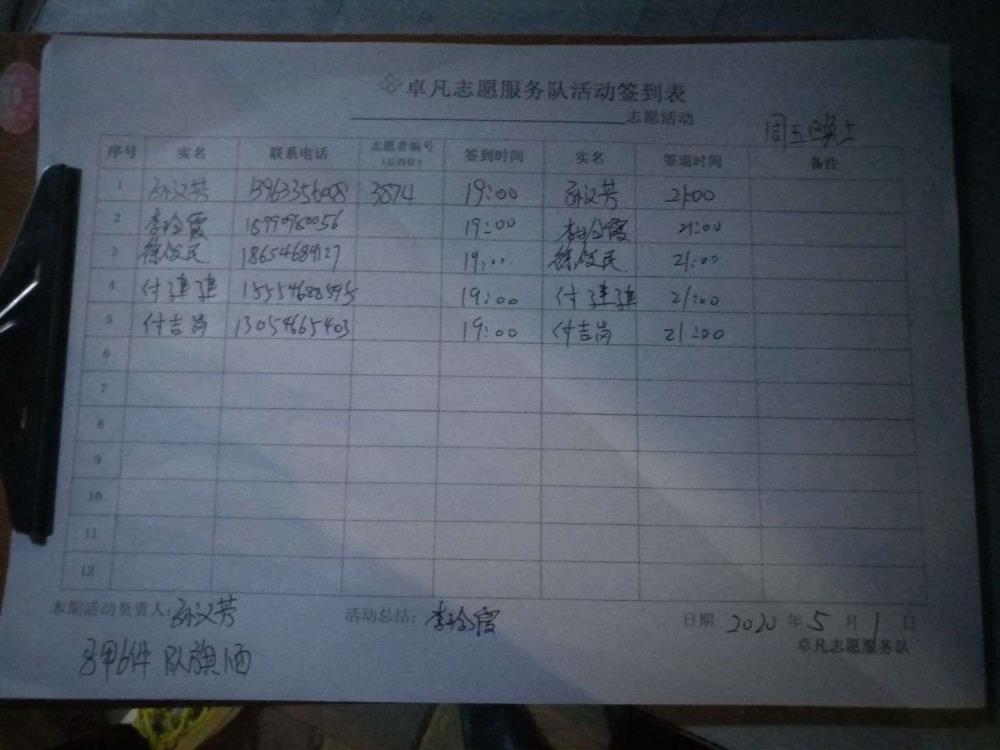 卓凡志愿服务队活动签到表
志愿活动
周五晚上
序号 实名 联系电话 志愿者编号（后四位） 签到时间 实名 签退时间 备注
1 孙汉芳 13963356008 3874 19:00 孙汉芳 21:00
2 李玲霞 19:00 李玲霞 21:00
3 徐俊民 18654684127 19:00 徐俊民 21:00
4 付建建 15554688595 19:00 付建建 21:00
5 付吉岗 13054665403 19:00 付吉岗 21:00
6
7
8
9
10
11
12
本期活动负责人：孙汉芳 活动总结：李玲霞 日期 2020 年 5 月 1 日
卓凡志愿服务队
马甲6件 队旗1面